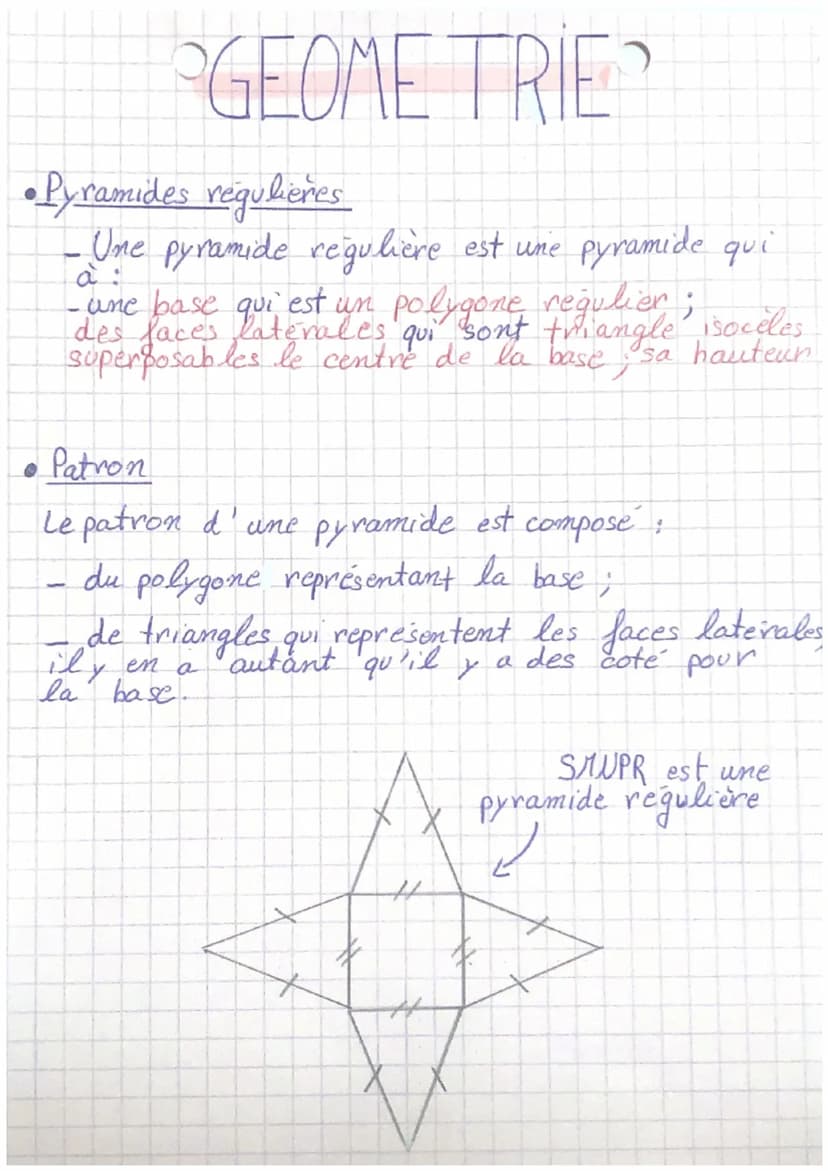 GEOMETRIE
• Pyramides régulières
- Une pyramide régulière est une pyramide qui
à :
- une base qui est un polygone régulier ;
des faces latérales qui sont triangle isocèles
superposables le centre de la base ; sa hauteur
• Patron
Le patron d'une pyramide est composé :
- du polygone représentant la base ;
- de triangles qui représentent les faces latérales,
il y en a autant qu'il y a des coté pour
la base.
SMNPR est une
pyramide régulière